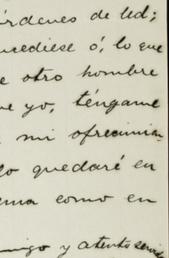 órdenes de Ud;
ucediese ó, lo que
e otro hombre
ue yo, téngame
mi ofrecimien
lo quedaré en
ema como en
migo y atento servid